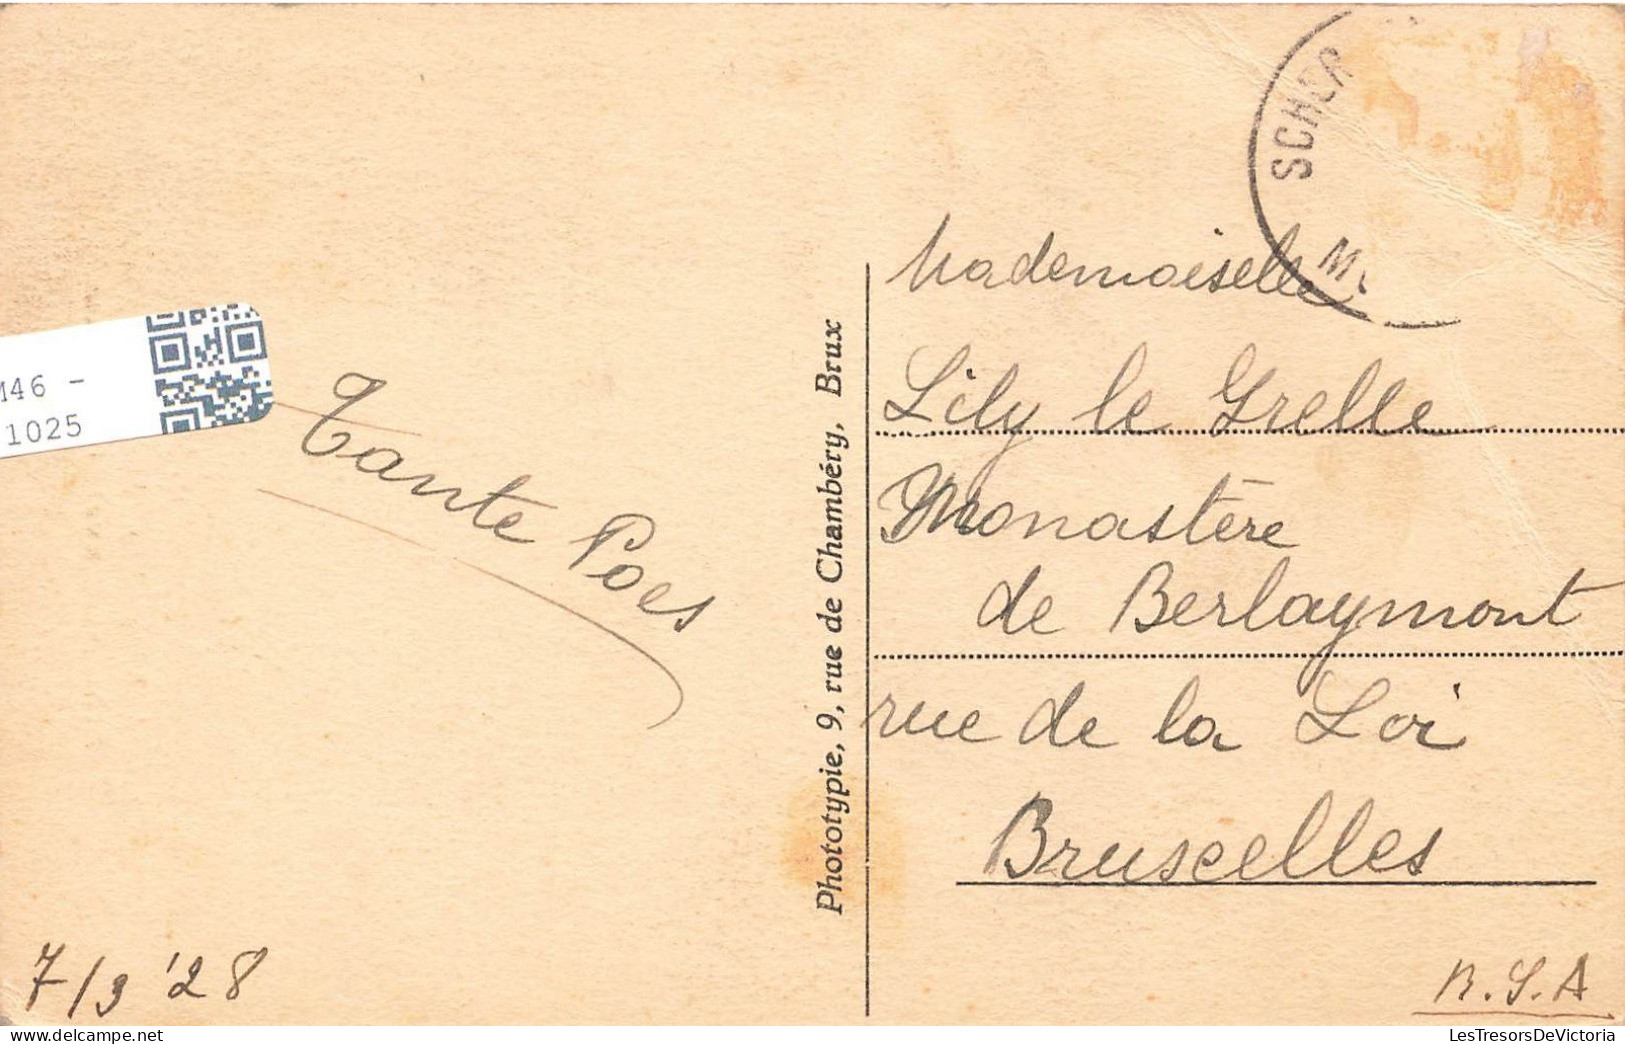 SCHER
M
Mademoiselle
Lily le Grelle
Monastère
de Berlaymont
rue de la Loi
Bruxelles
Tante Poes
7/3 '28
Phototypie, 9, rue de Chambéry, Brux
M46 -
1025
LesTresorsDeVictoria